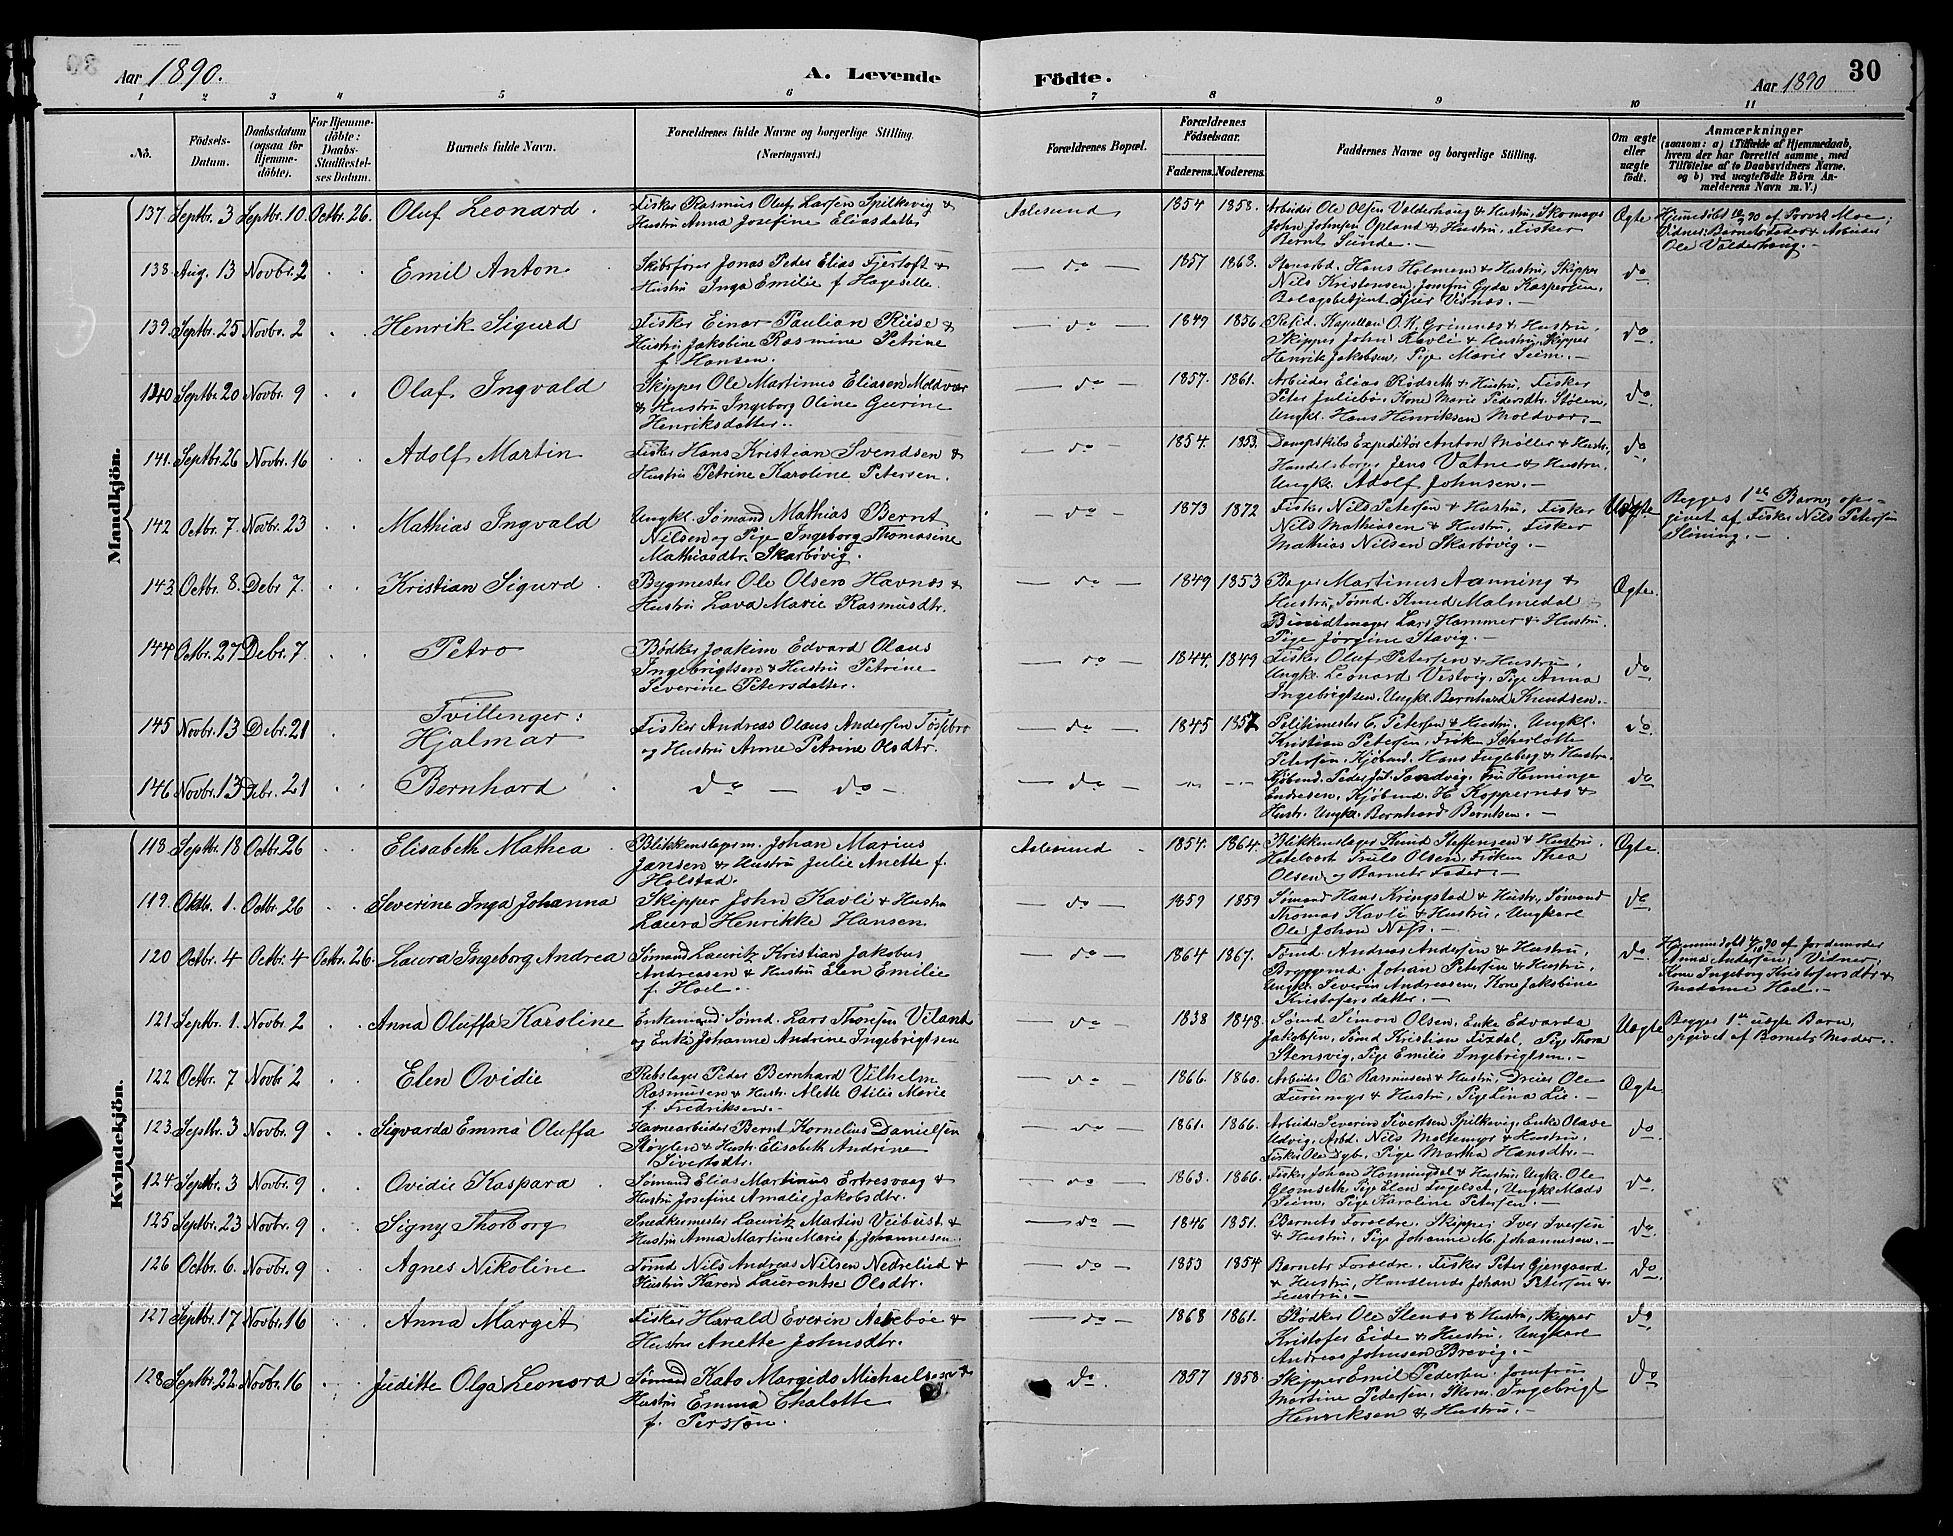 Aar 1890. A. Levende Födte. Aar 1890 30
1 2 3 4 5 6 7 8 9 10 11
No. Födsels-Datum. Daabsdatum (ogsaa for Hjemmedöbte). For Hjemmedöbte: Daabs-Stadfæstelses Datum. Barnets fulde Navn. Forældrenes fulde Navne og borgerlige Stilling. (Næringsvei.) Forældrenes Bopæl. Forældrenes Födselsaar. Faderens. Moderens. Faddernes Navne og borgerlige Stilling. Om ægte eller uægte födt. Anmærkninger (saasom: a) i Tilfælde af Hjemmedaab, hvem der har forrettet samme, med Tilföielse af to Daabsvidners Navne, og b) ved uægtefödte Börn Anmelderens Navn m. V.)
Mandkjön.
137. Septbr. 3 Septbr. 10. Octbr. 26. Oluf Leonard. Fisker Rasmus Oluf Larsen Spilkevig &
Hustru Anna Josefine Eliasdatter
Aalesund 1854 1858. Arbeider Ole Olsen Valderhoug & Hustru, Skomager
John Johnsen Opland & Hustru, Fisker
Bernt Sunde. Ægte Hjemmedøbt 10/9 90 af Provst Moe;
Vidner: Barnets Fader & Arbeider
Ole Valderhoug.
138. Aug. 13 Novbr. 2 Emil Anton Skibsfører Jonas Peder Elias Fjertoft &
Hustru Inga Emilie f. Hageselle.
do 1857 1863. Hans Holmem & Hustru, Skipper
Nils Kristensen, Jomfru Gyda Kaspersen,
Bolagsbetjent Sjur Visnæs. do
139. Septbr. 25 Novbr. 2 Henrik Sigurd Fisker Einar Paulian Riise &
Hustru Jakobine Rasmine Petrine
f. Hansen.
do 1849 1856 Resid. Kapellan O. K. Grimnæs & Hustru,
Skipper John Kavli & Hustru, Skipper
Henrik Jakobsen, Pige Marie Seim. do
140 Septbr. 20 Novbr. 9 Olaf Ingvald Skipper Ole Martinus Eliasen Moldvær
& Hustru Ingeborg Oline Gurine
Henriksdatter.
do 1857. 1861. Arbeider Elias Rødseth & Hustru, Fisker
Peter Juliebø, Kone Marie Pedersdtr. Stølen,
Ungkl. Hans Henriksen Moldvær. do
141. Septbr. 26 Novbr. 16 Adolf Martin Fisker Hans Kristian Svendsen &
Hustru Petrine Karoline Petersen.
do 1854. 1853. Dampskibs Expeditør Anton Møller & Hustr.
Handelsborger Jens Vatne & Hustru,
Ungkl. Adolf Johnsen. do
142 Octbr. 7. Novbr. 23 Mathias Ingvald Ungkl. Sømand Mathias Bernt
Nilsen og Pige Ingeborg Thomasine
Mathiasdtr. Skarbøvig.
do 1873 1872 Fisker Nils Petersen & Hustru, Fisker
Nils Mathiasen & Hustru, Fisker
Mathias Nilsen Skarbøvig. Uægte Begges 1ste Barn, op-
givet af Fisker Nils Petersen
Sløning.
143. Octbr. 8. Debr. 7. Kristian Sigurd Bygmester Ole Olsen Havnæs &
Hustru Lava Marie Rasmusdtr.
do 1849 1853 Bager Martinus Aanning &
Hustru, Tømd. Knud Malmedal
Lars Hammer & Hustru.
Pige Jørgine Stavig. Ægte.
144 Octbr. 27 Debr. 7. Petro Bødker Joakim Edvard Olaus
Ingebrigtsen & Hustru Petrine
Severine Petersdatter.
do 1844. 1849 Fisker Oluf Petersen & Hustru,
Ungkl. Leonard Vestvig, Pige Anna
Ingebrigtsen, Ungkl. Bernhard Knudsen. do
145 Novbr. 13 Debr. 21 Tvillinger:
Hjalmar Fisker Andreas Olaus Andersen Tøsebro
og Hustru Anne Petrine Olsdtr.
do 1845 1857 Politimester C. Petersen & Hustru. Ungkl.
Kristian Petersen, Frøken Scharlotte
Petersen, Kjøbmd. Hans Fugleberg & Hustru. do
146 Novbr. 13 Debr. 21 Bernhard do do
do Kjøbmd. Peder Sandvig, Fru Henninge
Endresen, Kjøbmd. H. Koppernæs &
Hustr. Ungkl. Bernhard Berntsen. do
Kvindekjön.
118 Septbr. 18 Octbr. 26 Elisabeth Mathea Blikkenslagerm. Johan Marius
Jansen & Hustru Julie Anette f.
Holstad.
Aalesund 1854. 1864. Blikkenslager Knud Steffensen & Hustru,
Hotelvert Truls Olsen, Frøken Thea
Olsen og Barnets Fader. Ægte.
119. Oktbr. 1. Octbr. 26 Severine Inga Johanna Skipper John Kavli & Hustru
Laura Henrikke Hansen
do 1859 1859 Sømand Hans Kringstad & Hustr., Sømand
Thomas Kavli & Hustru, Ungkarl
Ole Johan Næss. do
120 Octbr. 4 Octbr. 4 Octbr. 26. Laura Ingeborg Andrea Sømand Lauritz Kristian Jakobus
Andreasen & Hustru Elen Emilie
f. Hoel.
do 1864 1867. Tømd. Andreas Andersen & Hustru,
Bryggemd. Johan Petersen & Hustru,
Ungkl. Severin Andreasen, Kone Jakobine
Kristofersdatter. do. Hjemmedøbt 4/10 90 af Jordemoder
Anna Andersen; Vidner:
Kone Ingeborg Kristofersdtr &
Madame Hoel.
121 Septbr. 1. Novbr. 2 Anna Oluffa Karoline Enkemand Sømd. Lars Thoresen Viland
og Enke Johanne Andrine Ingebrigtsen
do 1838 1848. Sømd. Simon Olsen, Enke Edvarda
Jakobsen, Sømd Kristian Fixdal, Pige Thora
Stensvig, Pige Emilie Ingebrigtsen. Uægte Begges 1ste uægte Barn,
opgivet af Barnets Moder.
122 Octbr. 7 Novbr. 2 Elen Ovidie Rebslager Peder Bernhard Vilhelm
Rasmusen & Hustr. Alette Otilie Marie
f. Fredriksen.
do 1866. 1860. Arbeider Ole Rasmusen & Hustru, Dreier Ole
Furumyr & Hustru, Pige Lina Lie. Ægte
123. Septbr. 3 Novbr. 9 Sigvarda Emma Oluffa Havnearbeider Bernt Kornelius Danielsen
Røylen & Hustr. Elisabeth Andrine
Sivertsdtr.
do 1861. 1866. Arbeider Severin Sivertsen Spilkevig, Enke Olave
Udvig, Arbd. Nils Moltemyr & Hustru,
Fisker Ole Dyb, Pige Martha Hansdtr. do
124 Septbr. 3 Novbr. 9 Ovidie Kaspara Sømand Elias Martinus Ertresvaag &
Hustru Josefine Amalie Jakobsdtr.
do 1863. 1866. Fisker Johan Honningdal & Hustru, Ungkl. Ole
Glomseth, Pige Elen Fugelset, Ungkl. Mads
Seim, Pige Karoline Petersen. do
125 Septbr. 23 Novbr. 9 Signy Thorborg Snedkermester Lauritz Martin Veibust &
Hustru Anna Martine Marie f. Johannesen.
do 1846 1851. Barnets Forældre, Skipper Iver Iversen
& Hustru, Pige Johanne M. Johannesen. do
126 Octbr. 6. Novbr. 9 Agnes Nikoline Tømd Nils Andreas Nilsen Nedrelid &
Hustru Karen Laurentse Olsdtr.
do 1853 1854 Barnets Forældre, Fisker Peter Gjengaard
& Hustru, Handlende Johan Petersen &
Hustru. do
127 Septbr. 17 Novbr. 16 Anna Margit Fisker Harald Everin Aarebøe &
Hustru Anette Johnsdtr.
do 1868 1861. Bødker Ole Stenes & Hustru, Skipper
Kristofer Eide & Hustru. Ungkarl
Andreas Johnsen Brevig. do
128 Septbr. 22 Novbr. 16 Juditte Olga Leonora Sømand Kato Margido Michaelsen &
Hustru Emma Chalotte
f. Persson.
do. 1857 1858. Skipper Emil Pedersen, Jomfru
Martine Pedersen, Skom. Ingebrigt
Henriksen & Hustru. do